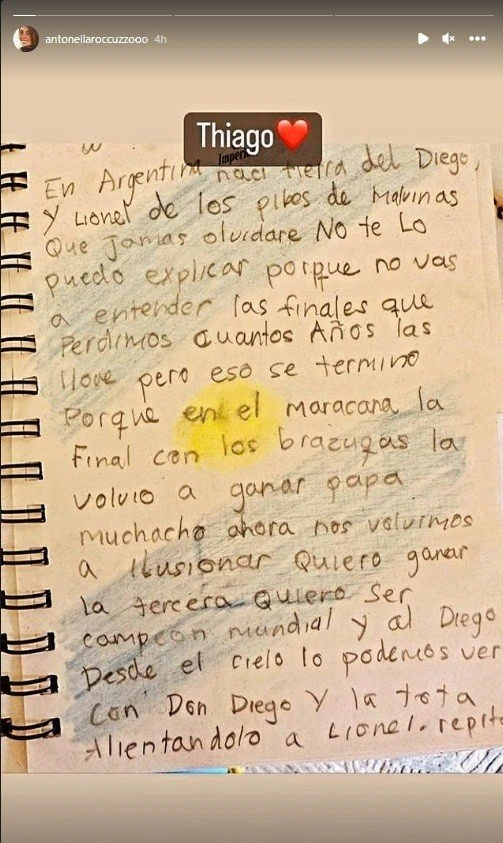 antonellaroccuzzooo 4h
Thiago
Imperi
En Argentina naci tierra del Diego,
y Lionel de los pibes de Malvinas
Que Jamas olvidare No te Lo
puedo explicar porque no vas
a entender las finales que
Perdimos Cuantos Años las
llore pero eso se termino
Porque en el maracana la
Final con los brazucas la
volvio a ganar papa
muchacho ahora nos volvimos
a ilusionar Quiero ganar
la tercera Quiero Ser
campeon mundial y al Diego
Desde el cielo lo podemos ver
Con Don Diego Y la tota
Alientandolo a Lionel. repit